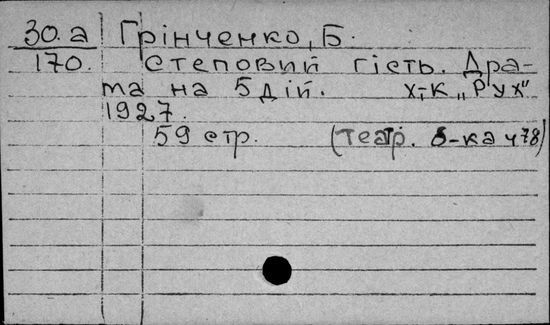 30.а Грінченко, Б.
170. Степовий гість. Дра-
ма на 5 дій. Х-к „Рух"
1927.
59 стр. (Театр. б-ка ч 78)